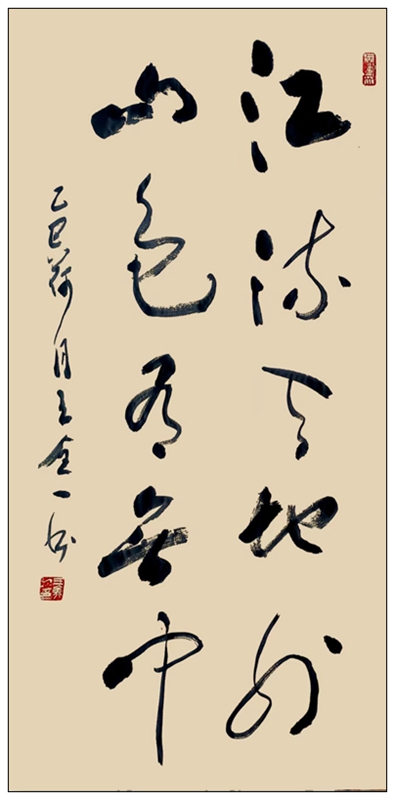 江流天地外
山色有无中
乙巳荷月王金一书